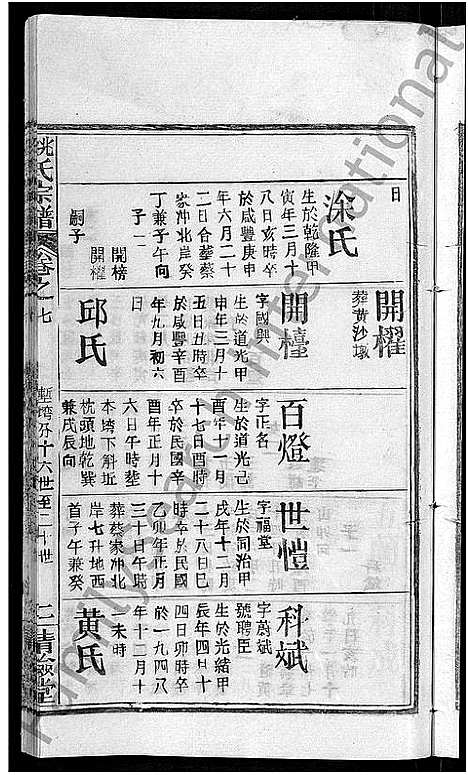 日
涂氏
生於乾隆甲
寅年三月十
八日亥時卒
於咸豐庚申
年六月二十
二日合葬蔡
家冲北岸癸
丁兼子午向
子二
開榜
開櫂
嗣子
開櫂
葬黄沙墩
開檯
字國興
生於道光甲
申年三月十
五日丑時卒
於咸豐辛酉
年九月初六
日
邱氏
百燈
字正名
生於道光己
酉年十一月
十七日酉時
卒於民國辛
酉年正月十
六日午時塟
本垮下斛坵
枕頭地乾巽
兼戌辰向
世愷
字福堂
生於同治甲
戌年十二月
二十八日巳
時卒於民國
乙卯年正月
三十日午時
葬蔡家冲北
岸七升地西
首子午兼癸
科斌
字蔚斌
號聘臣
生於光緒甲
辰年四月十
四日卯時卒
於一九四八
年十二月十
一未時
黄氏
姚氏宗譜
卷之七
塹垮分十六世至二十世
二
清儉堂
Family Search International